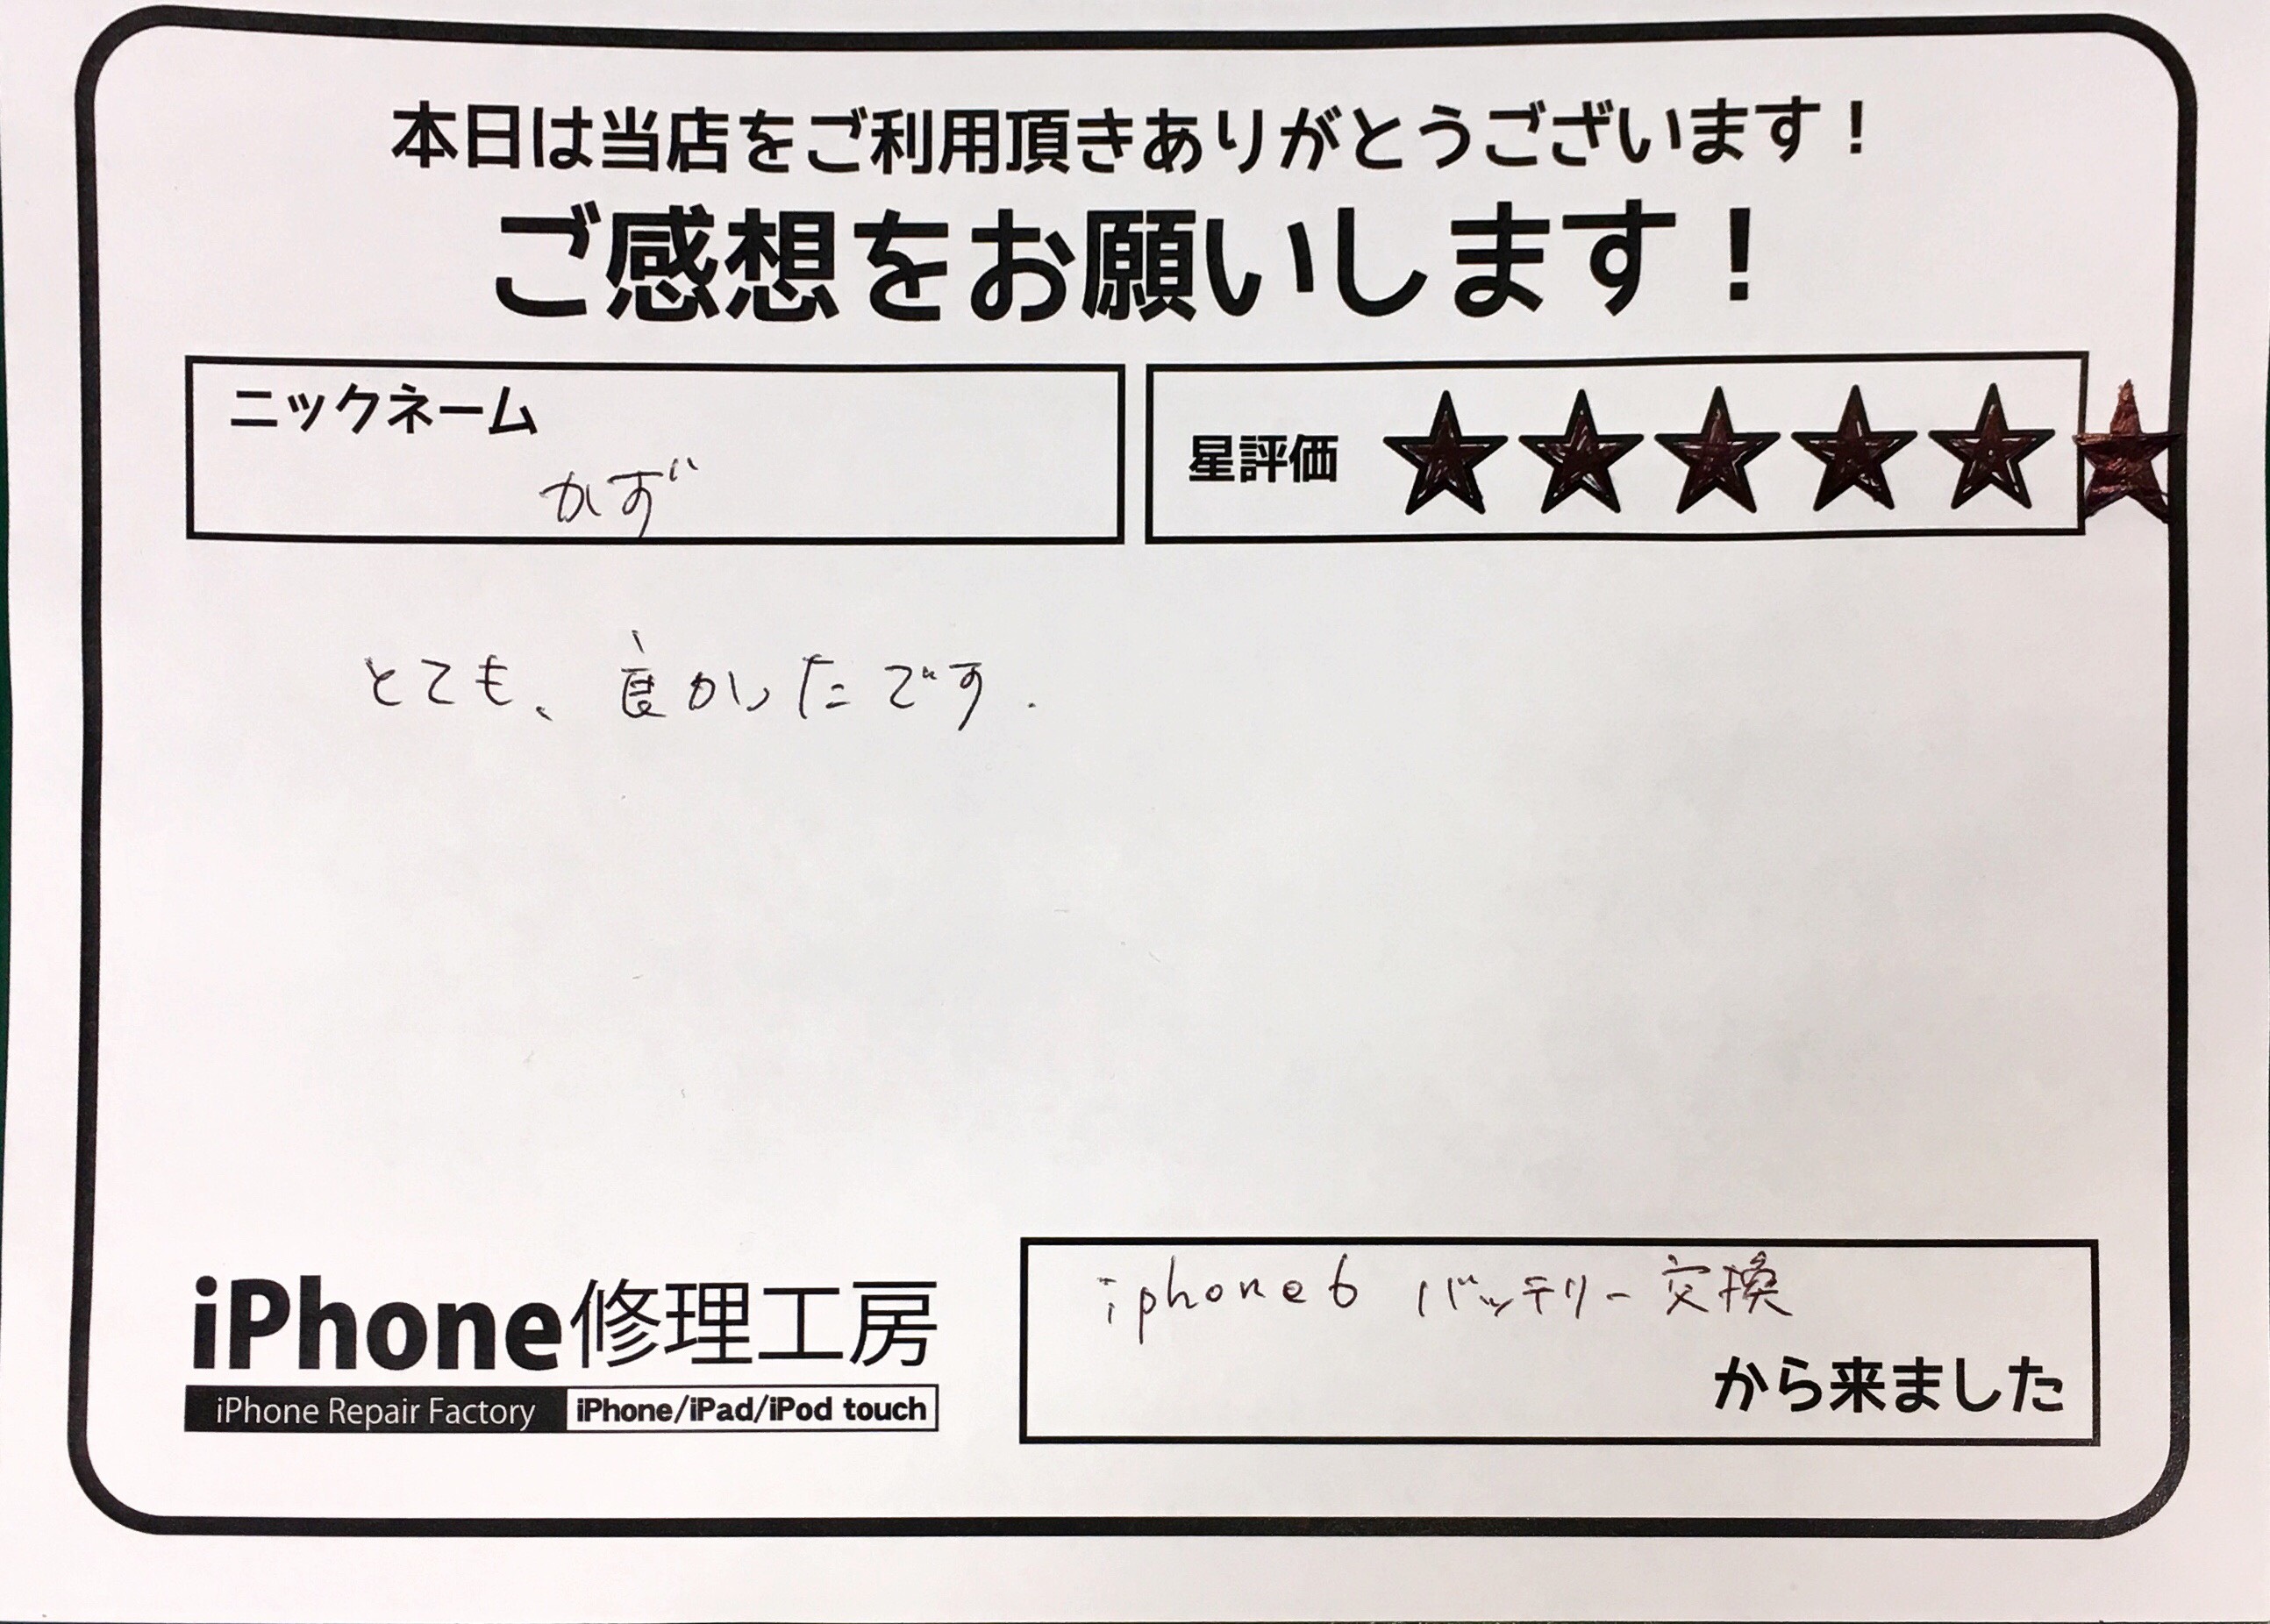 本日は当店をご利用頂きありがとうございます！
ご感想をお願いします！
ニックネーム
かず
星評価 ★★★★★★
とても、良かったです.
iphone6 バッテリー交換
から来ました
iPhone修理工房
iPhone Repair Factory iPhone/iPad/iPod touch